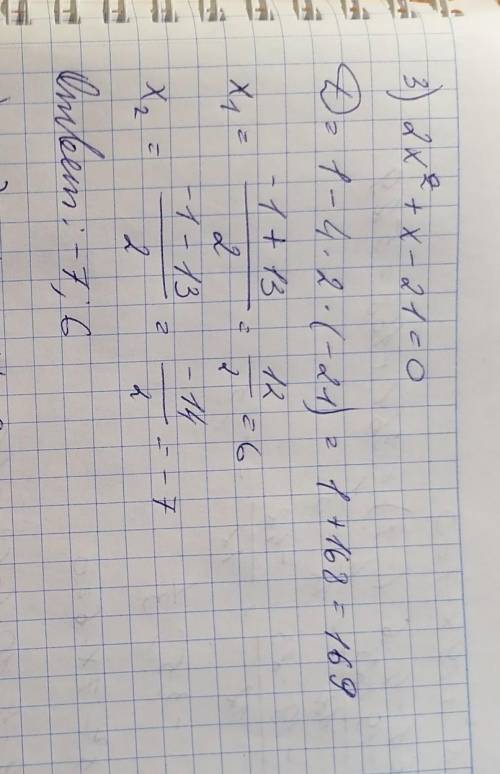 3) 2x² + x - 21 = 0
D = 1 - 4 · 2 · (-21) = 1 + 168 = 169
x₁ = \frac{-1 + 13}{2} = \frac{12}{2} = 6
x₂ = \frac{-1 - 13}{2} = \frac{-14}{2} = -7
Ответ: -7; 6